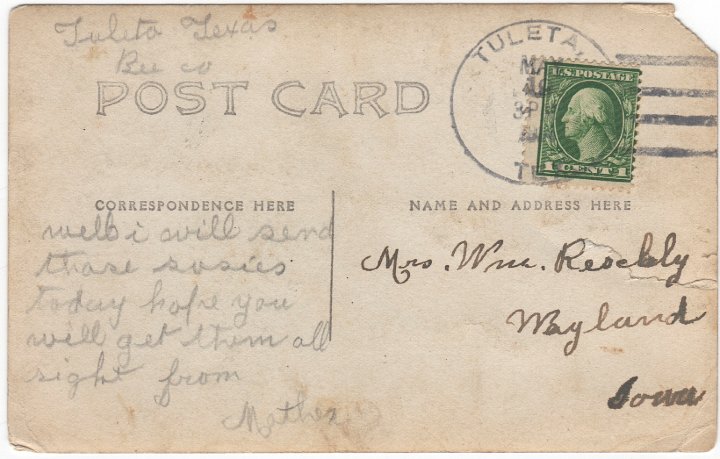 Tuleta Texas
Bee co
POST CARD
TULETA,
MA
3P
TE
U.S. POSTAGE
1 CENT 1
CORRESPONDENCE HERE
NAME AND ADDRESS HERE
well i will send
those
today hope you
will get them all
right from
Mother
Mrs. Wm.
Wayland
Iowa